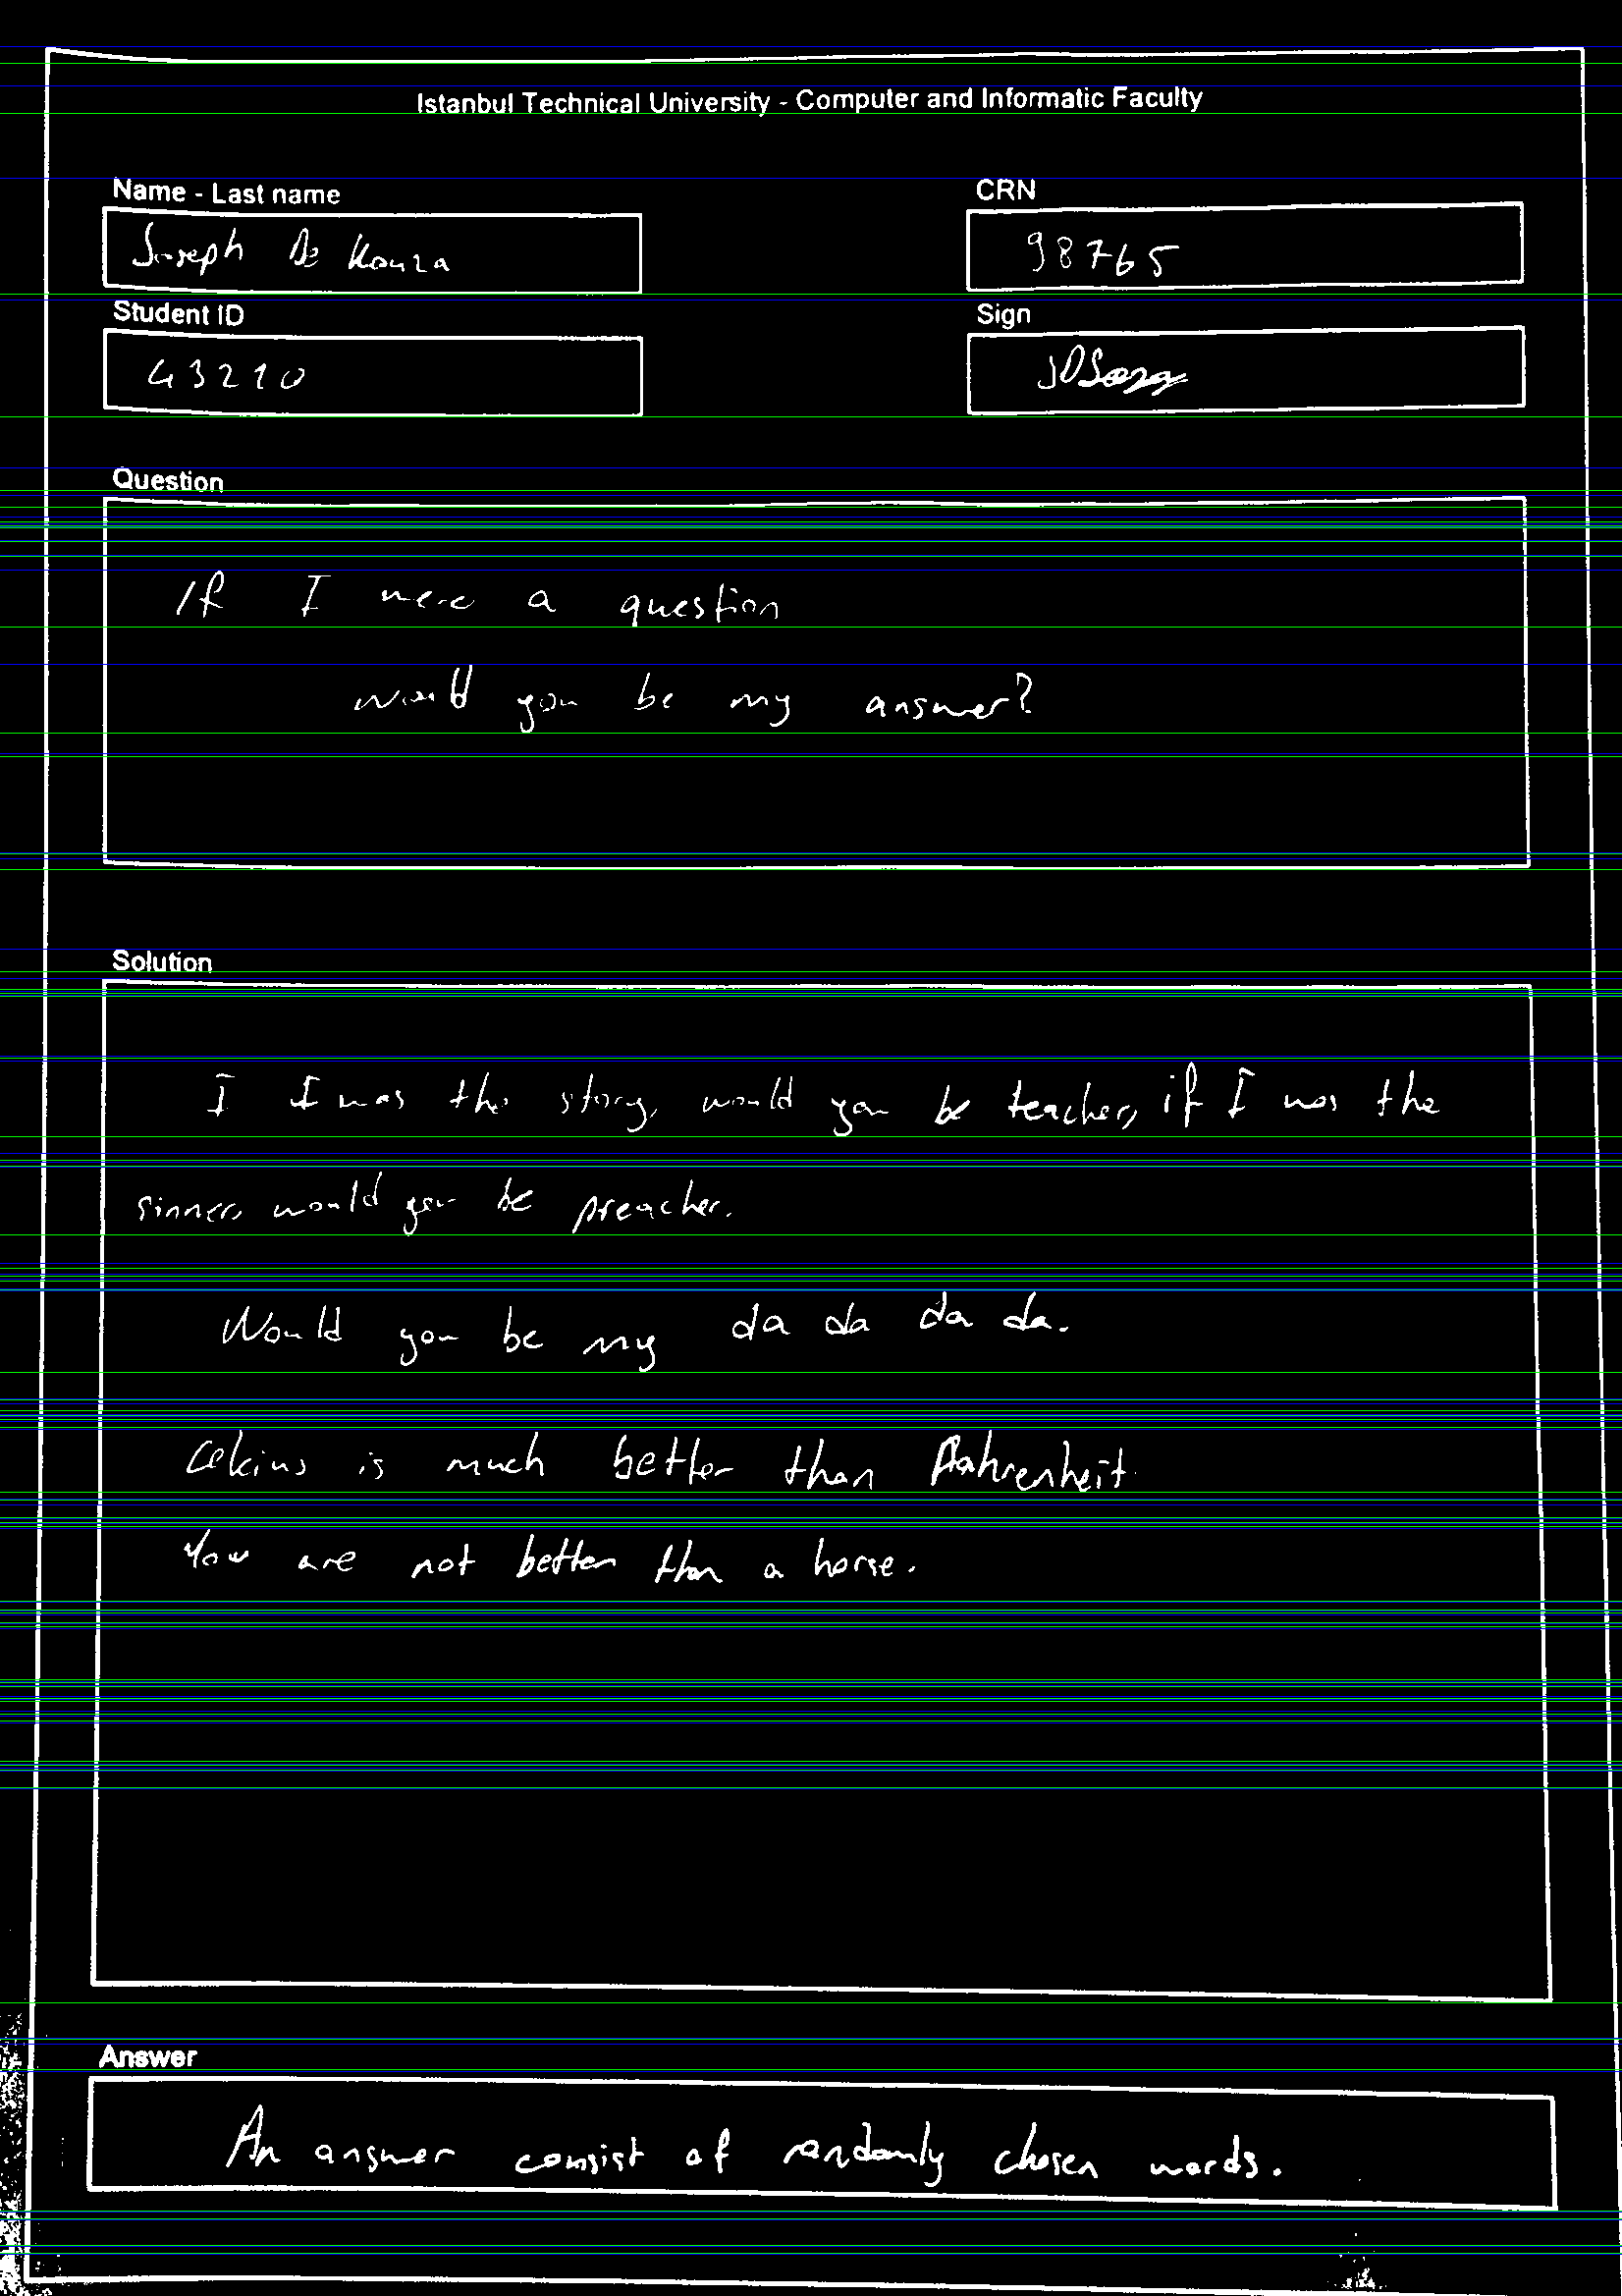 Istanbul Technical University - Computer and Informatic Faculty
Name - Last name
CRN
Joseph De Kouza
98765
Student ID
Sign
43210
Question
If I were a question
would you be my answer?
Solution
I I was the story, would you be teacher, if I was the
sinner, would you be preacher.
Would you be my da da da da.
Celcius is much better than Fahrenheit.
You are not better than a horse.
Answer
An answer consist of randomly chosen words.